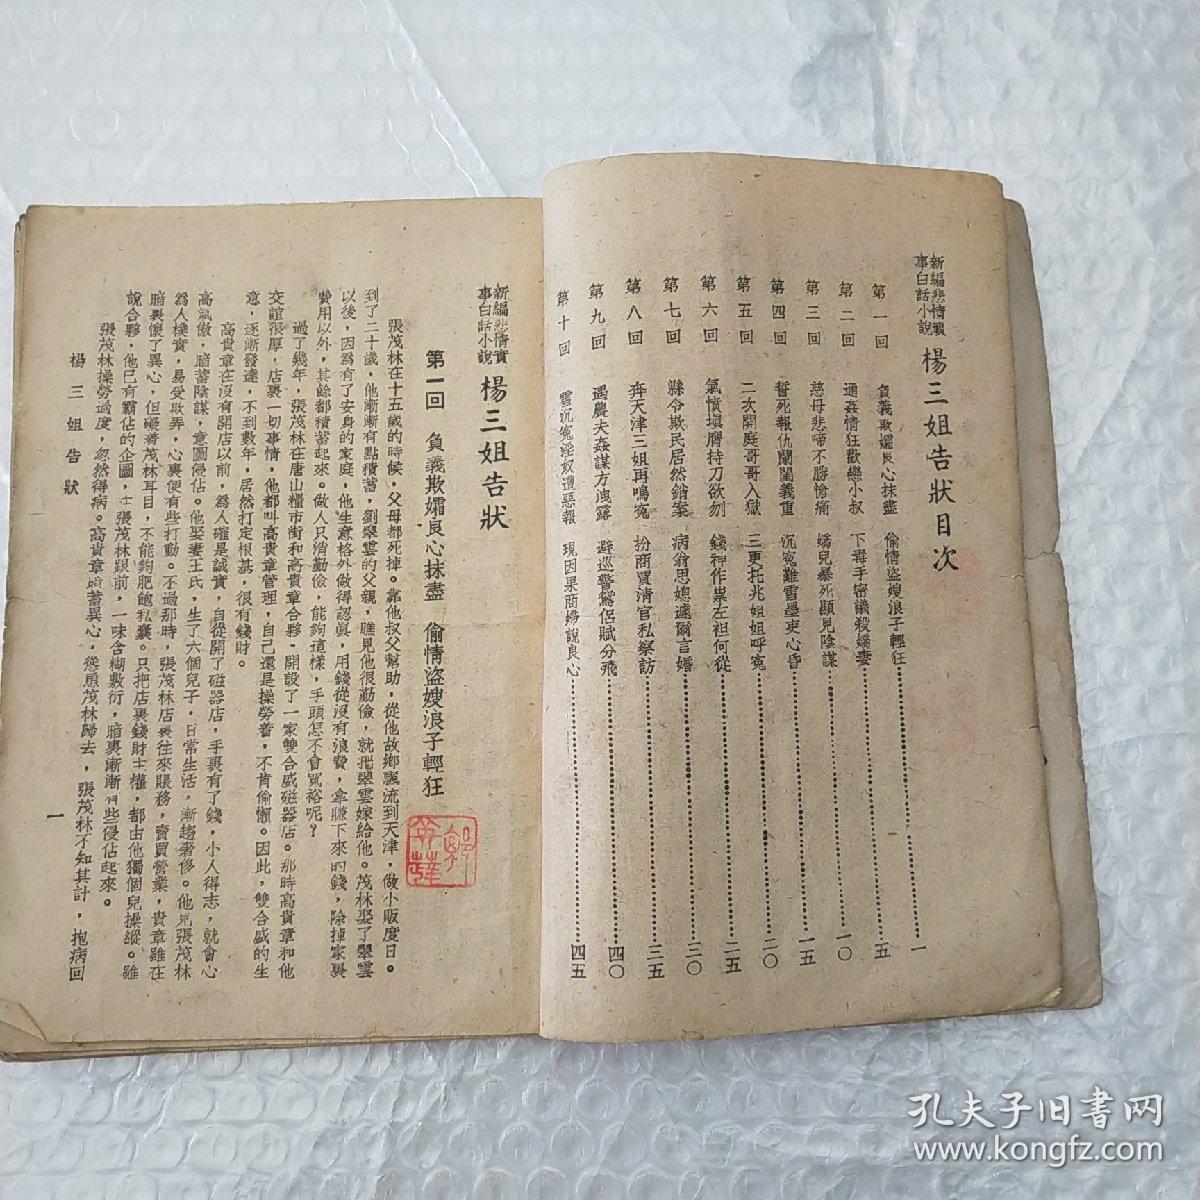 新編悲情實事白話小說 楊三姐告狀目次
第一回 負義欺孀良心抹盡 偷情盜嫂浪子輕狂 一
第二回 通姦情狂歡戀小叔 下毒手密議殺嬌妻 五
第三回 慈母悲啼不勝愴痛 嬌兒暴死顯見陰謀 一〇
第四回 誓死報仇闡闡義重 沉寃難雪墨吏心昏 一五
第五回 二次開庭哥哥入獄 三更托兆姐姐呼寃 二〇
第六回 氣憤塡膺持刀欲刎 錢神作祟左袒何從 二五
第七回 縣令欺民居然錯案 病翁思媳遽爾言婚 三〇
第八回 奔天津三姐再鳴寃 扮商賈淸官私察訪 三五
第九回 遇農夫姦謀方洩露 避巡警鴛侶賦分飛 四〇
第十回 雪沉寃淫奴遭惡報 現因果商婦說良心 四五
新編悲情實事白話小說 楊三姐告狀
第一回 負義欺孀良心抹盡 偷情盜嫂浪子輕狂
張茂林在十五歲的時候，父母都死掉。靠他叔父幫助，從他故鄉飄流到天津，做小販度日。
到了二十歲，他漸漸有點積蓄，劉翠雲的父親，瞧見他很勤儉，就把翠雲嫁給他。茂林娶了翠雲
以後，因爲有了安身的家庭，他生意格外做得認眞，用錢從沒有浪費，拿賺下來的錢，除掉家裏
費用以外，其餘都積蓄起來。做人只消勤儉，能夠這樣，手頭怎不會寬裕呢？
過了幾年，張茂林在唐山糧市街和高貴章合夥，開設了一家雙合盛磁器店。那時高貴章和他
交誼很厚，店裏一切事情，他都叫高貴章管理，自己還是操勞着，不肯偷懶。因此，雙合盛的生
意，逐漸發達，不到數年，居然打定根基，很有錢財。
高貴章在沒有開店以前，爲人確是誠實，自從開了磁器店，手裏有了錢，小人得志，就會心
高氣傲，暗蓄陰謀，意圖侵佔。他娶妻王氏，生了六個兒子，日常生活，漸趨奢侈。他見張茂林
爲人樸實，易受欺弄，心裏便有些打動。不過那時，張茂林店裏往來賬務，賣買營業，貴章雖在
暗裏懷了異心，但礙着茂林耳目，不能夠肥飽私囊。只把店裏錢財主權，都由他獨個兒操縱。雖
說合夥，他已有霸佔的企圖，在張茂林跟前，一味含糊敷衍，暗裏漸漸有些侵佔起來。
張茂林操勞過度，忽然得病。高貴章暗蓄異心，慫恿茂林歸去，張茂林不知其計，抱病回
楊三姐告狀
一
郭
孔夫子旧书网
www.kongfz.com